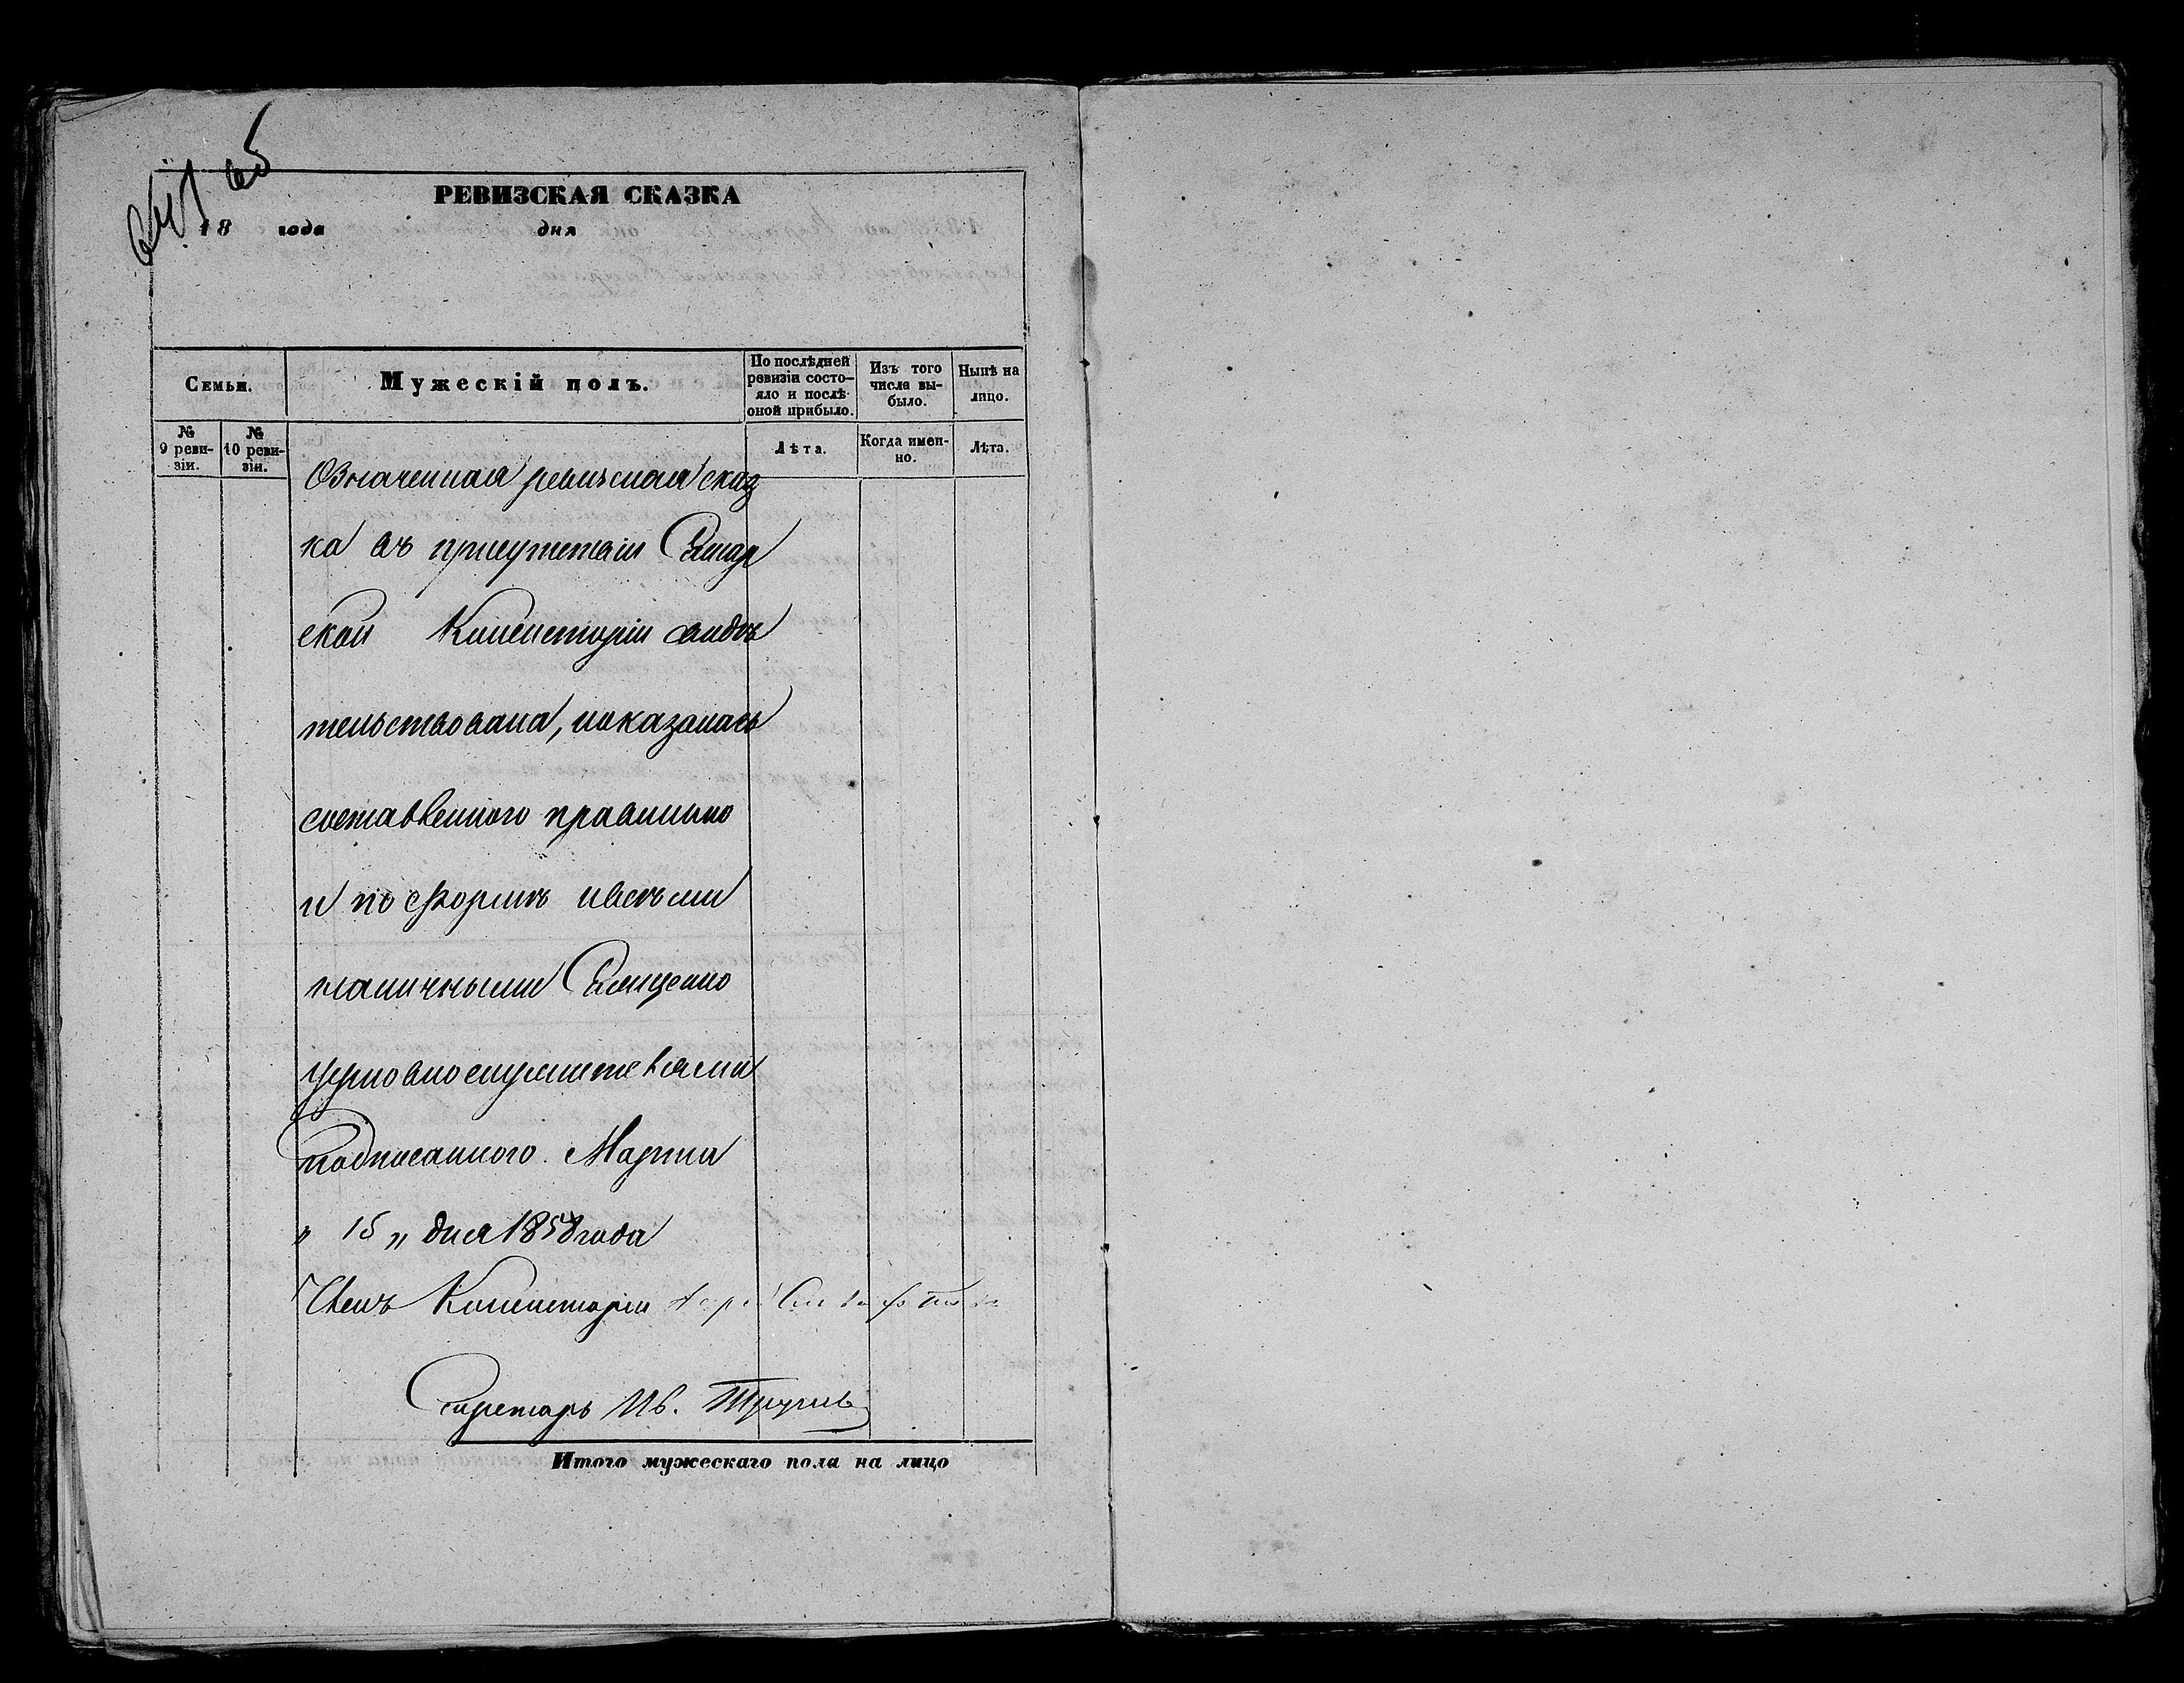 641 65
РЕВИЗСКАЯ СКАЗКА
18 года дня
Семьи.
Мужескій полъ.
По послѣдней ревизіи состо-яло и послѣ оной прибыло.
Изъ того числа вы-было.
Нынѣ на лицо.
№ 9 реви-зіи.
№ 10 реви-зіи.
Лѣта.
Когда имен-но.
Лѣта.
Означенная ревизская сказ
ка въ присутствіи
ской Консисторіи свидѣ
тельствована, показалась
составленною правильно
и по формѣ и всѣми
наличными Священно
церковнослужителями
подписанного. Марта
„ 15 „ дня 1858 года
Членъ Консисторіи
Секретарь Ив.
Итого мужескаго пола на лицо